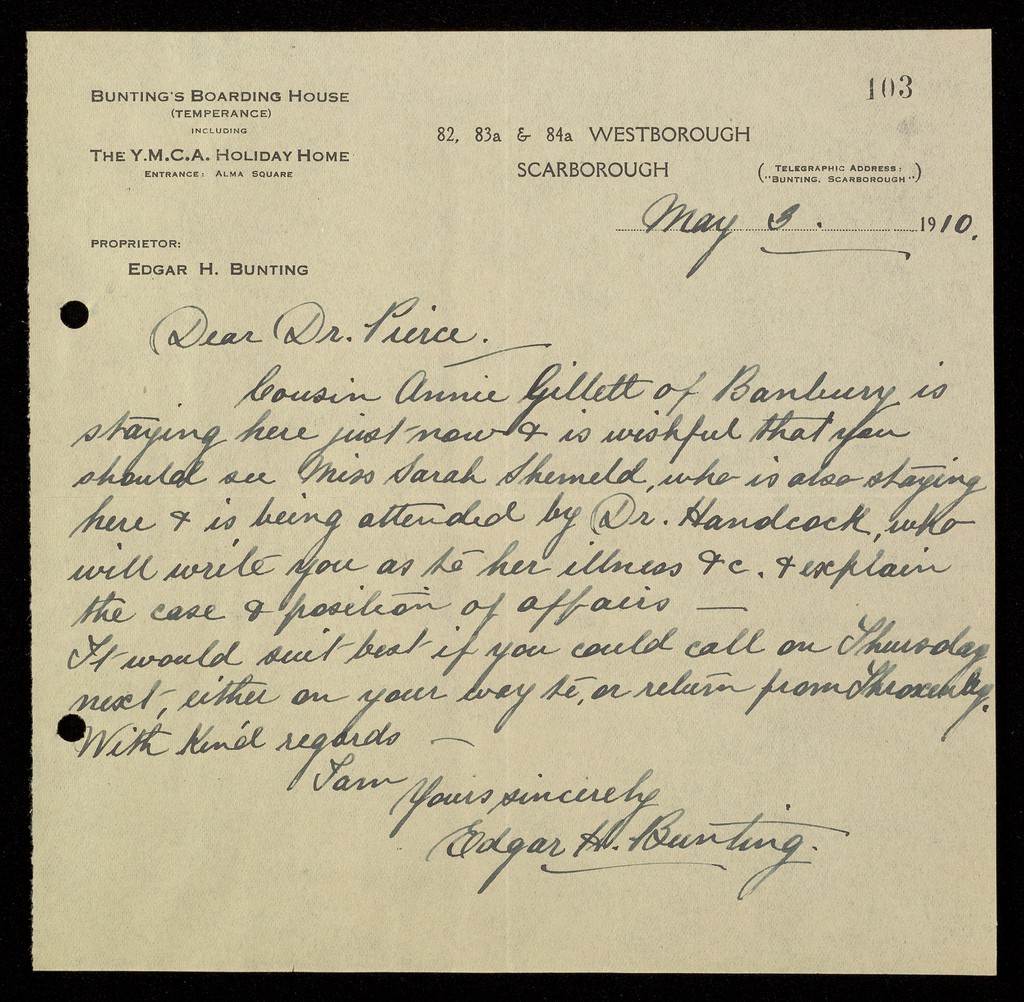 103
BUNTING'S BOARDING HOUSE
(TEMPERANCE)
INCLUDING
THE Y.M.C.A. HOLIDAY HOME
ENTRANCE: ALMA SQUARE
82, 83a & 84a WESTBOROUGH
SCARBOROUGH
(TELEGRAPHIC ADDRESS:
"BUNTING, SCARBOROUGH".)
May 3. 1910.
PROPRIETOR:
EDGAR H. BUNTING
Dear Dr. Pierce.
Cousin Annie Gillett of Banbury is
staying here just now & is wishful that you
should see Miss Sarah Shemeld, who is also staying
here & is being attended by Dr. Handcock, who
will write you as to her illness &c. & explain
the case & position of affairs —
It would suit best if you could call on Thursday
next, either on your way to, or return from Throxenby.
With kind regards —
I am
Yours sincerely
Edgar H. Bunting.